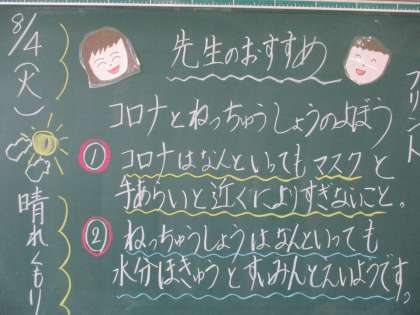 8/4(火)
晴れくもり
先生のおすすめ
コロナとねっちゅうしょうのよぼう
① コロナはなんといってもマスクと
手あらいと近くによりすぎないこと。
② ねっちゅうしょうはなんといっても
水分ほきゅうとすいみんとえいようです。
プリント